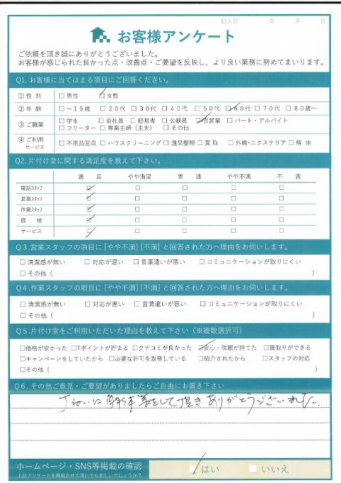 記入日　年　月　日
お客様アンケート
ご依頼を頂き誠にありがとうございました。
お客様が感じられた良かった点・改善点・ご要望を反映し、より良い業務に努めてまいります。
Q1. お客様に当てはまる項目にご回答ください。
① 性 別 □男性 □女性
② 年 齢 □～19歳 □20代 □30代 □40代 □50代 □60代 □70代 □80歳～
③ ご職業 □学生 □会社員 □経営者 □公務員 □自営業 □パート・アルバイト
□フリーター □専業主婦（主夫） □その他
④ ご利用サービス □不用品回収 □ハウスクリーニング □遺品整理 □買取 □外構・エクステリア □解体
Q2. 片付け堂に関する満足度を教えて下さい。
満足 やや満足 普通 やや不満 不満
電話スタッフ □ □ □ □ □
営業スタッフ □ □ □ □ □
作業スタッフ □ □ □ □ □
価格 □ □ □ □ □
サービス □ □ □ □ □
Q3.営業スタッフの項目に［やや不満］［不満］と回答された方へ理由をお伺いします。
□清潔感が無い □対応が遅い □言葉遣いが悪い □コミュニケーションが取りにくい
□その他（　）
Q4.作業スタッフの項目に［やや不満］［不満］と回答された方へ理由をお伺いします。
□清潔感が無い □対応が遅い □言葉遣いが悪い □コミュニケーションが取りにくい
□その他（　）
Q5.片付け堂をご利用いただいた理由を教えて下さい（※複数選択可）
□価格が安かった □Tポイントが貯まる □クチコミが良かった □安心・信頼が持てた □買取りができる
□キャンペーンをしていたから □必要な許可を取得している □紹介されたから □スタッフの対応
□その他（　）
Q6.その他ご意見・ご要望がありましたらご自由にお書き下さい
ていねいに 作業をして頂き ありがとうございました。
ホームページ・SNS等掲載の確認
□はい □いいえ